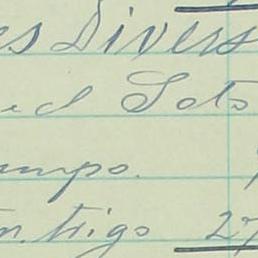 es Divers
ed Soto
ampo.
m. trigo 27